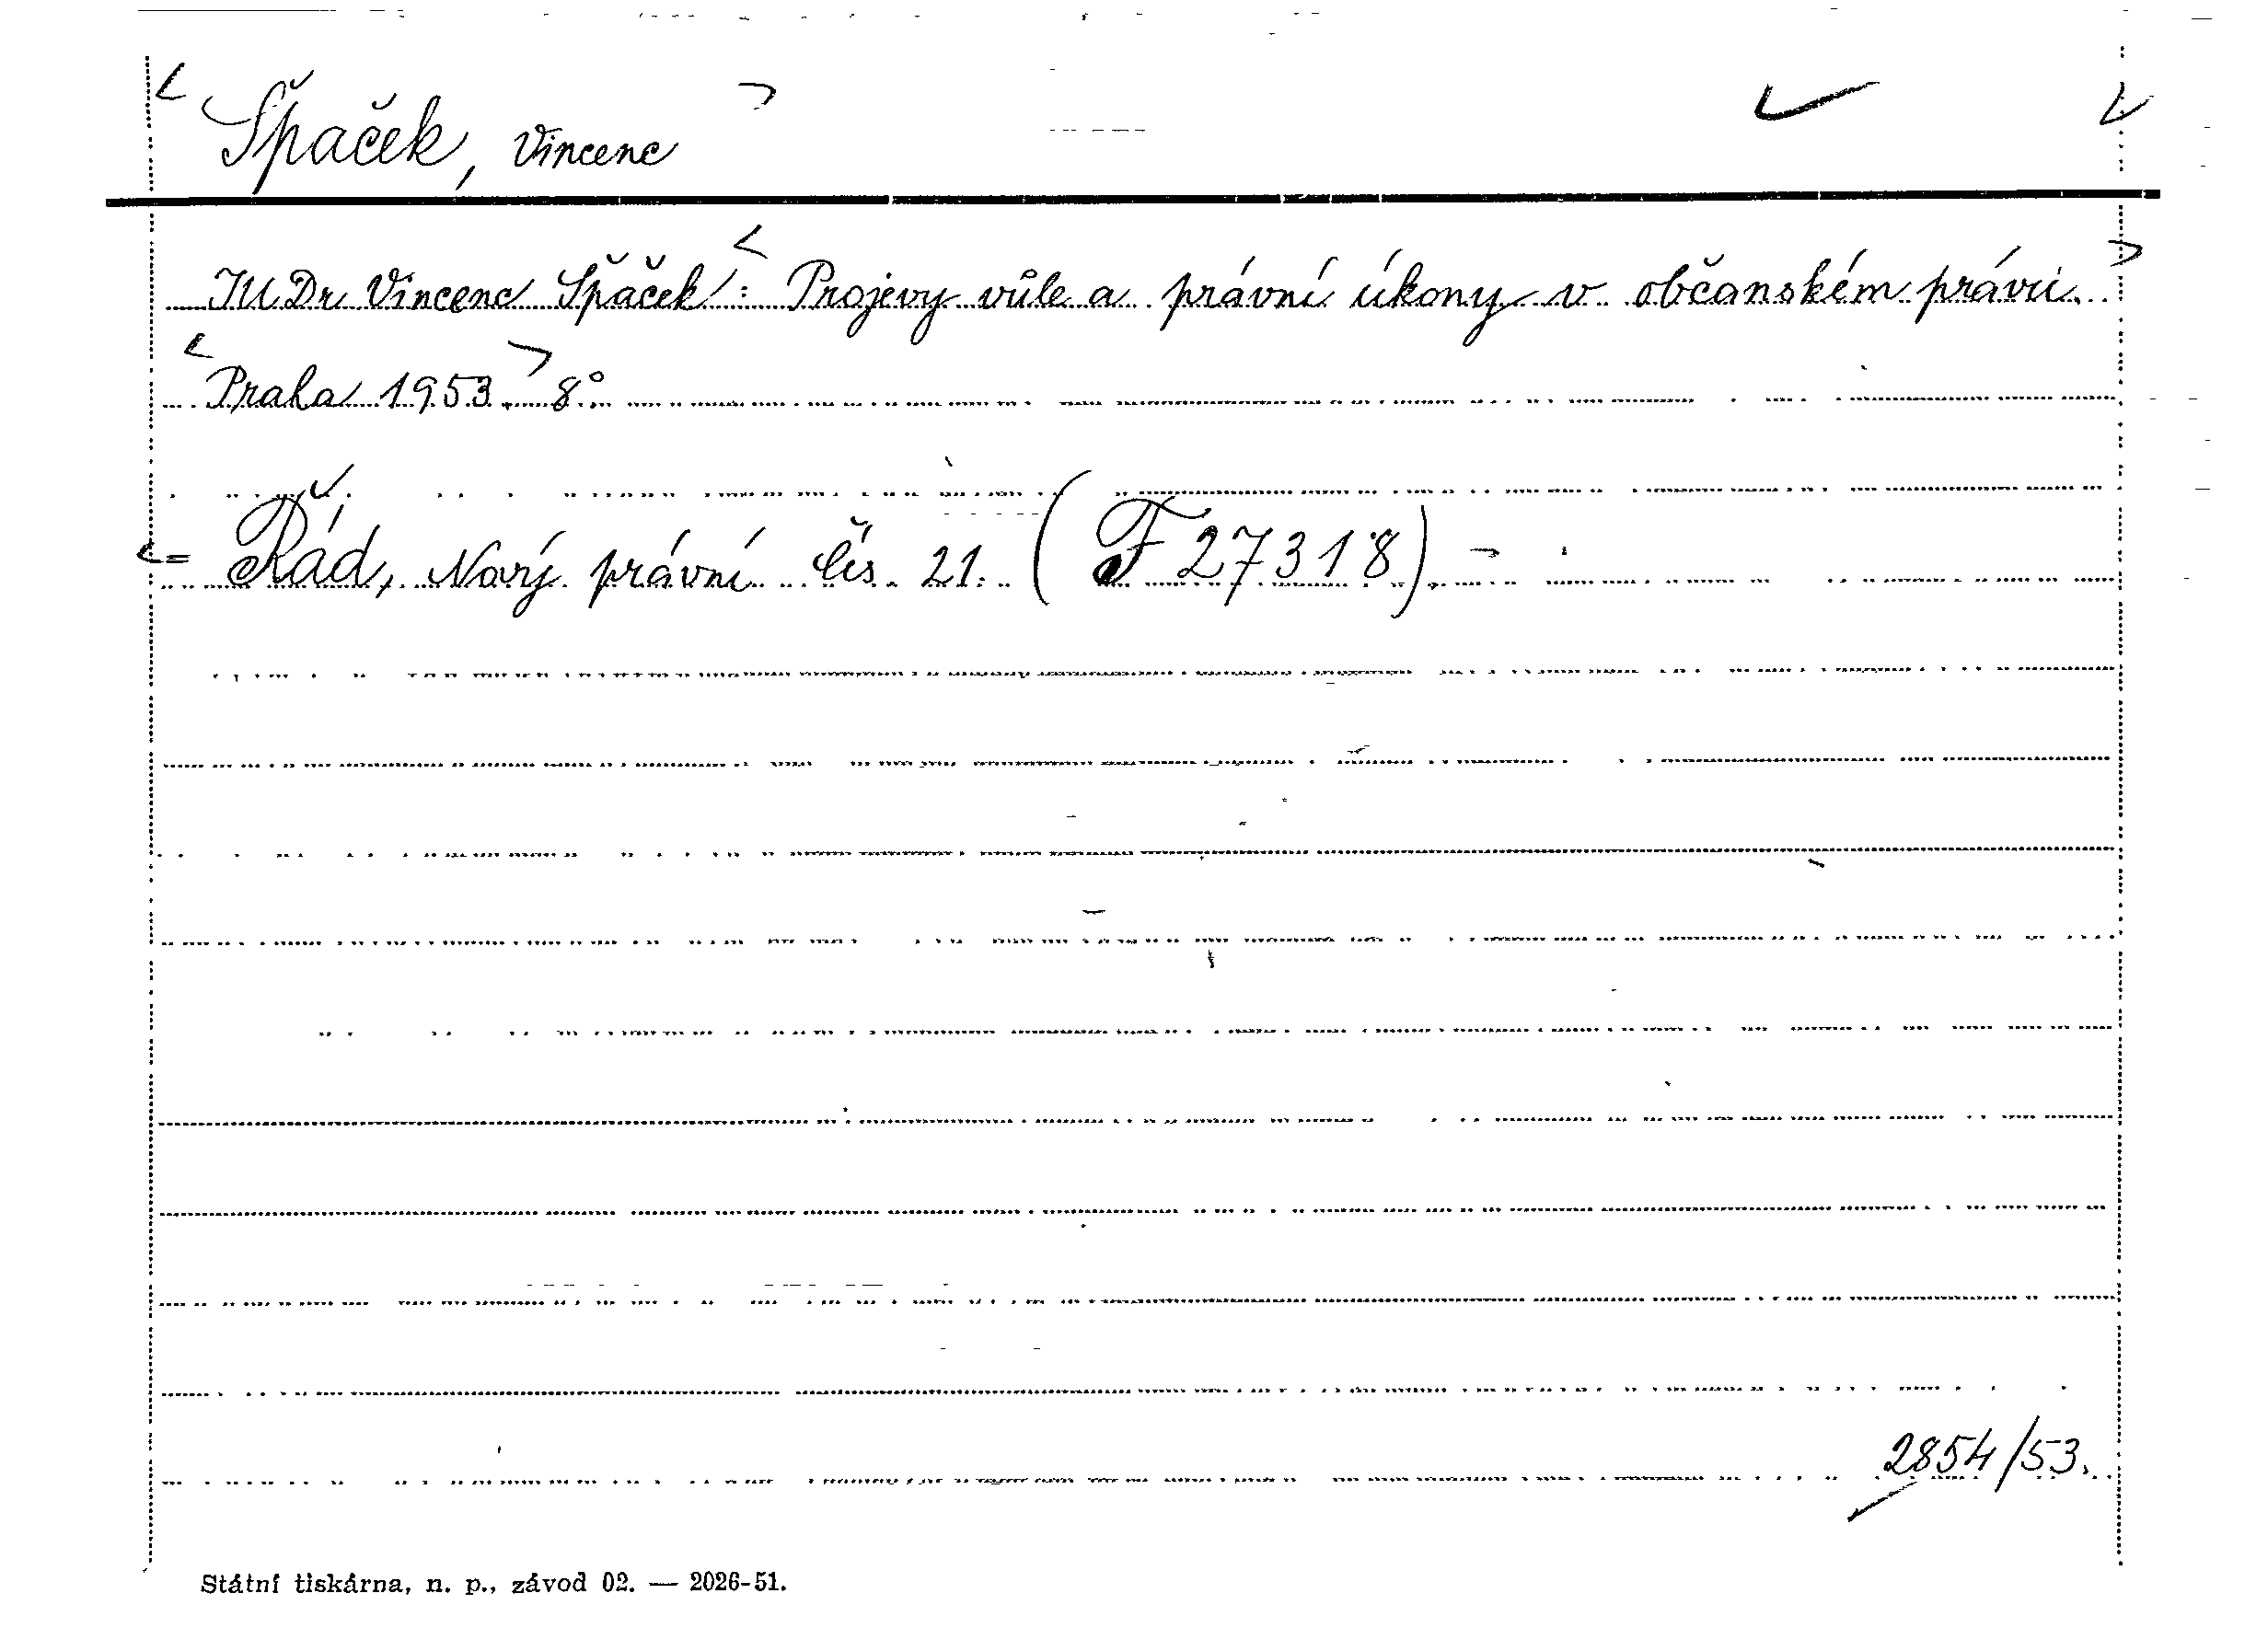 Špaček, Vincenc
JUDr Vincenc Špaček: Projevy vůle a právní úkony v občanském právu.
Praha 1953. 8°.
= Řád, Nový právní čís. 21. (F 27318). -
2854/53.
Státní tiskárna, n. p., závod 02. — 2026-51.